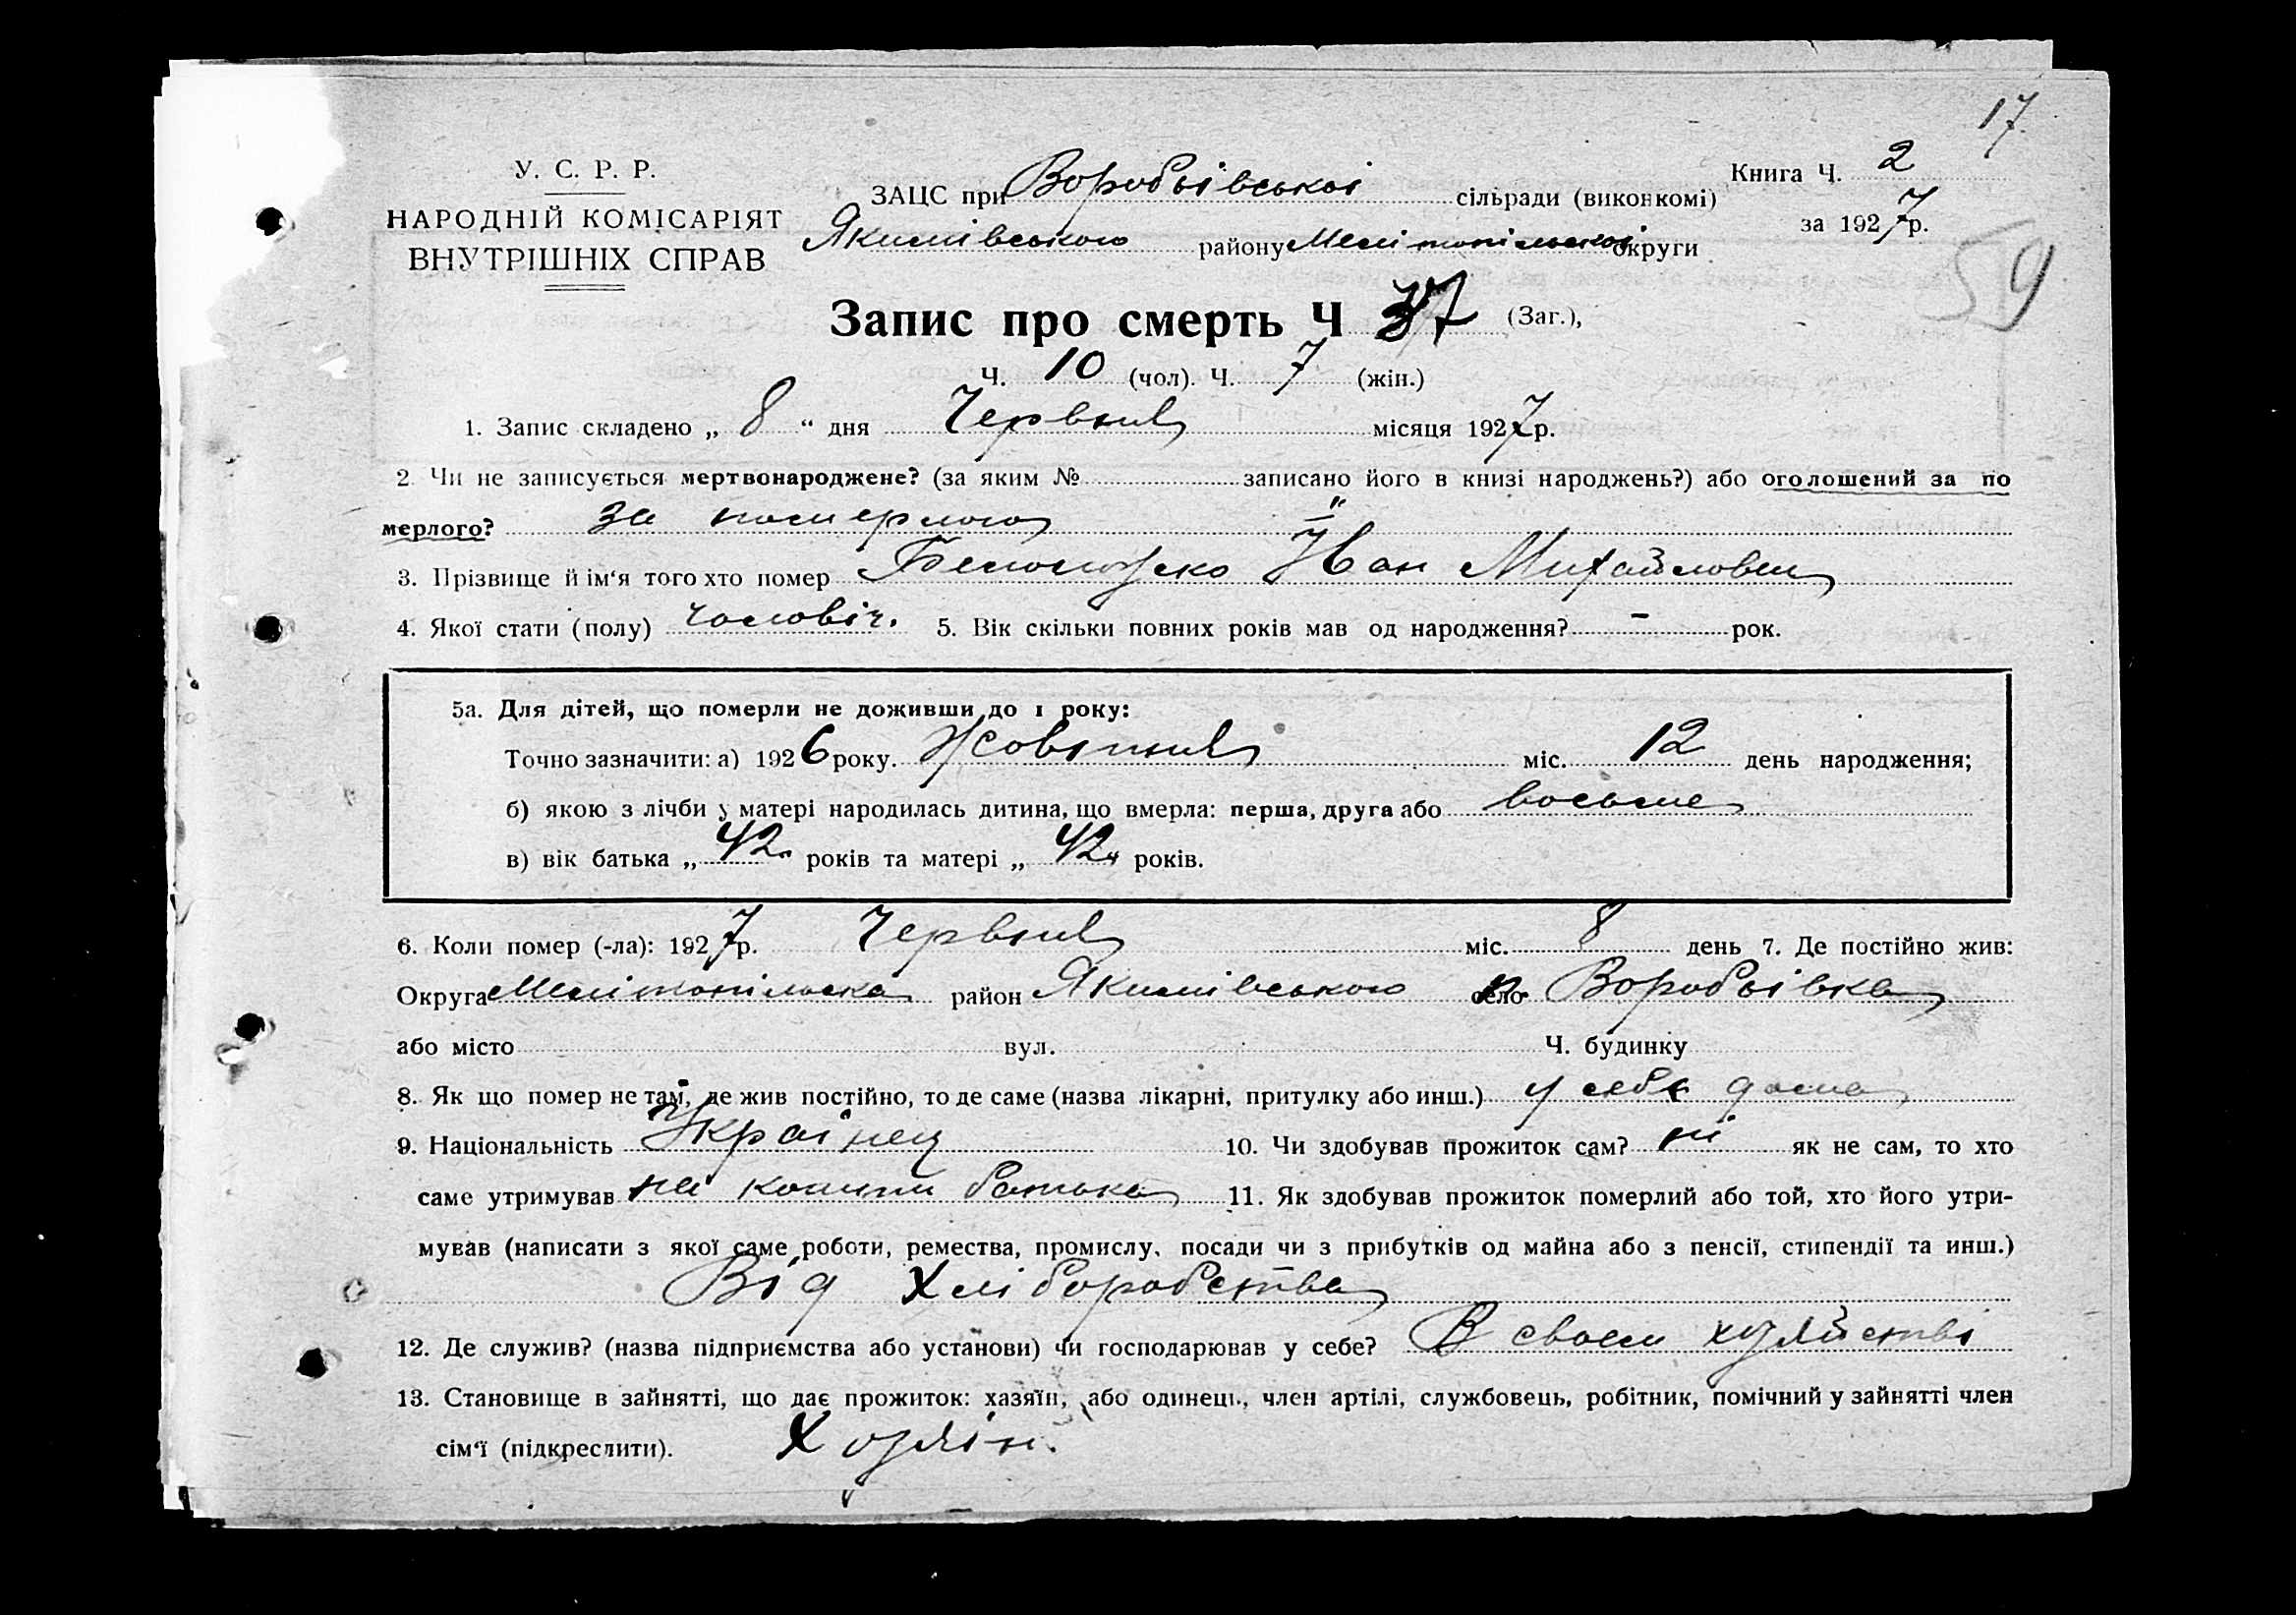 17.
У. С. Р. Р.
НАРОДНІЙ КОМІСАРІЯТ
ВНУТРІШНІХ СПРАВ
ЗАЦС при Воробьівськоі сільради (виконкомі)
Якимівського району Мелітопільськоі округи
Книга Ч. 2
за 1927 р.
59
Запис про смерть Ч 37 (Заг.),
Ч. 10 (чол). Ч. 7 (жін.)
1. Запис складено „ 8 “ дня Червня місяця 1927 р.
2. Чи не записується мертвонароджене? (за яким № записано його в книзі народжень?) або оголошений за по
мерлого? за померлого
3. Прізвище й ім‘я того хто помер Іван Михайлович
4. Якої стати (полу) чоловіч. 5. Вік скільки повних років мав од народження? – рок.
5а. Для дітей, що померли не доживши до 1 року:
Точно зазначити: а) 1926 року. Жовтня міс. 12 день народження;
б) якою з лічби у матері народилась дитина, що вмерла: перша, друга або восьме
в) вік батька „ 42 років та матері „ 42 років.
6. Коли помер (-ла): 1927 р. Червня міс. 8 день 7. Де постійно жив:
Округа Мелітопільска район Якимівського село Воробьівка
або місто вул. Ч. будинку
8. Як що помер не там, де жив постійно, то де саме (назва лікарні, притулку або инш.) у себе дома
9. Національність Украінец 10. Чи здобував прожиток сам? ні як не сам, то хто
саме утримував на кошти батька 11. Як здобував прожиток померлий або той, хто його утри-
мував (написати з якої саме роботи, ремества, промислу, посади чи з прибутків од майна або з пенсії, стипендії та инш.)
Від хліборобства
12. Де служив? (назва підприємства або установи) чи господарював у себе? В своем хузяйстві
13. Становище в зайнятті, що дає прожиток: хазяїн, або одинець, член артілі, службовець, робітник, помічний у зайнятті член
сім‘ї (підкреслити). Хозяін.